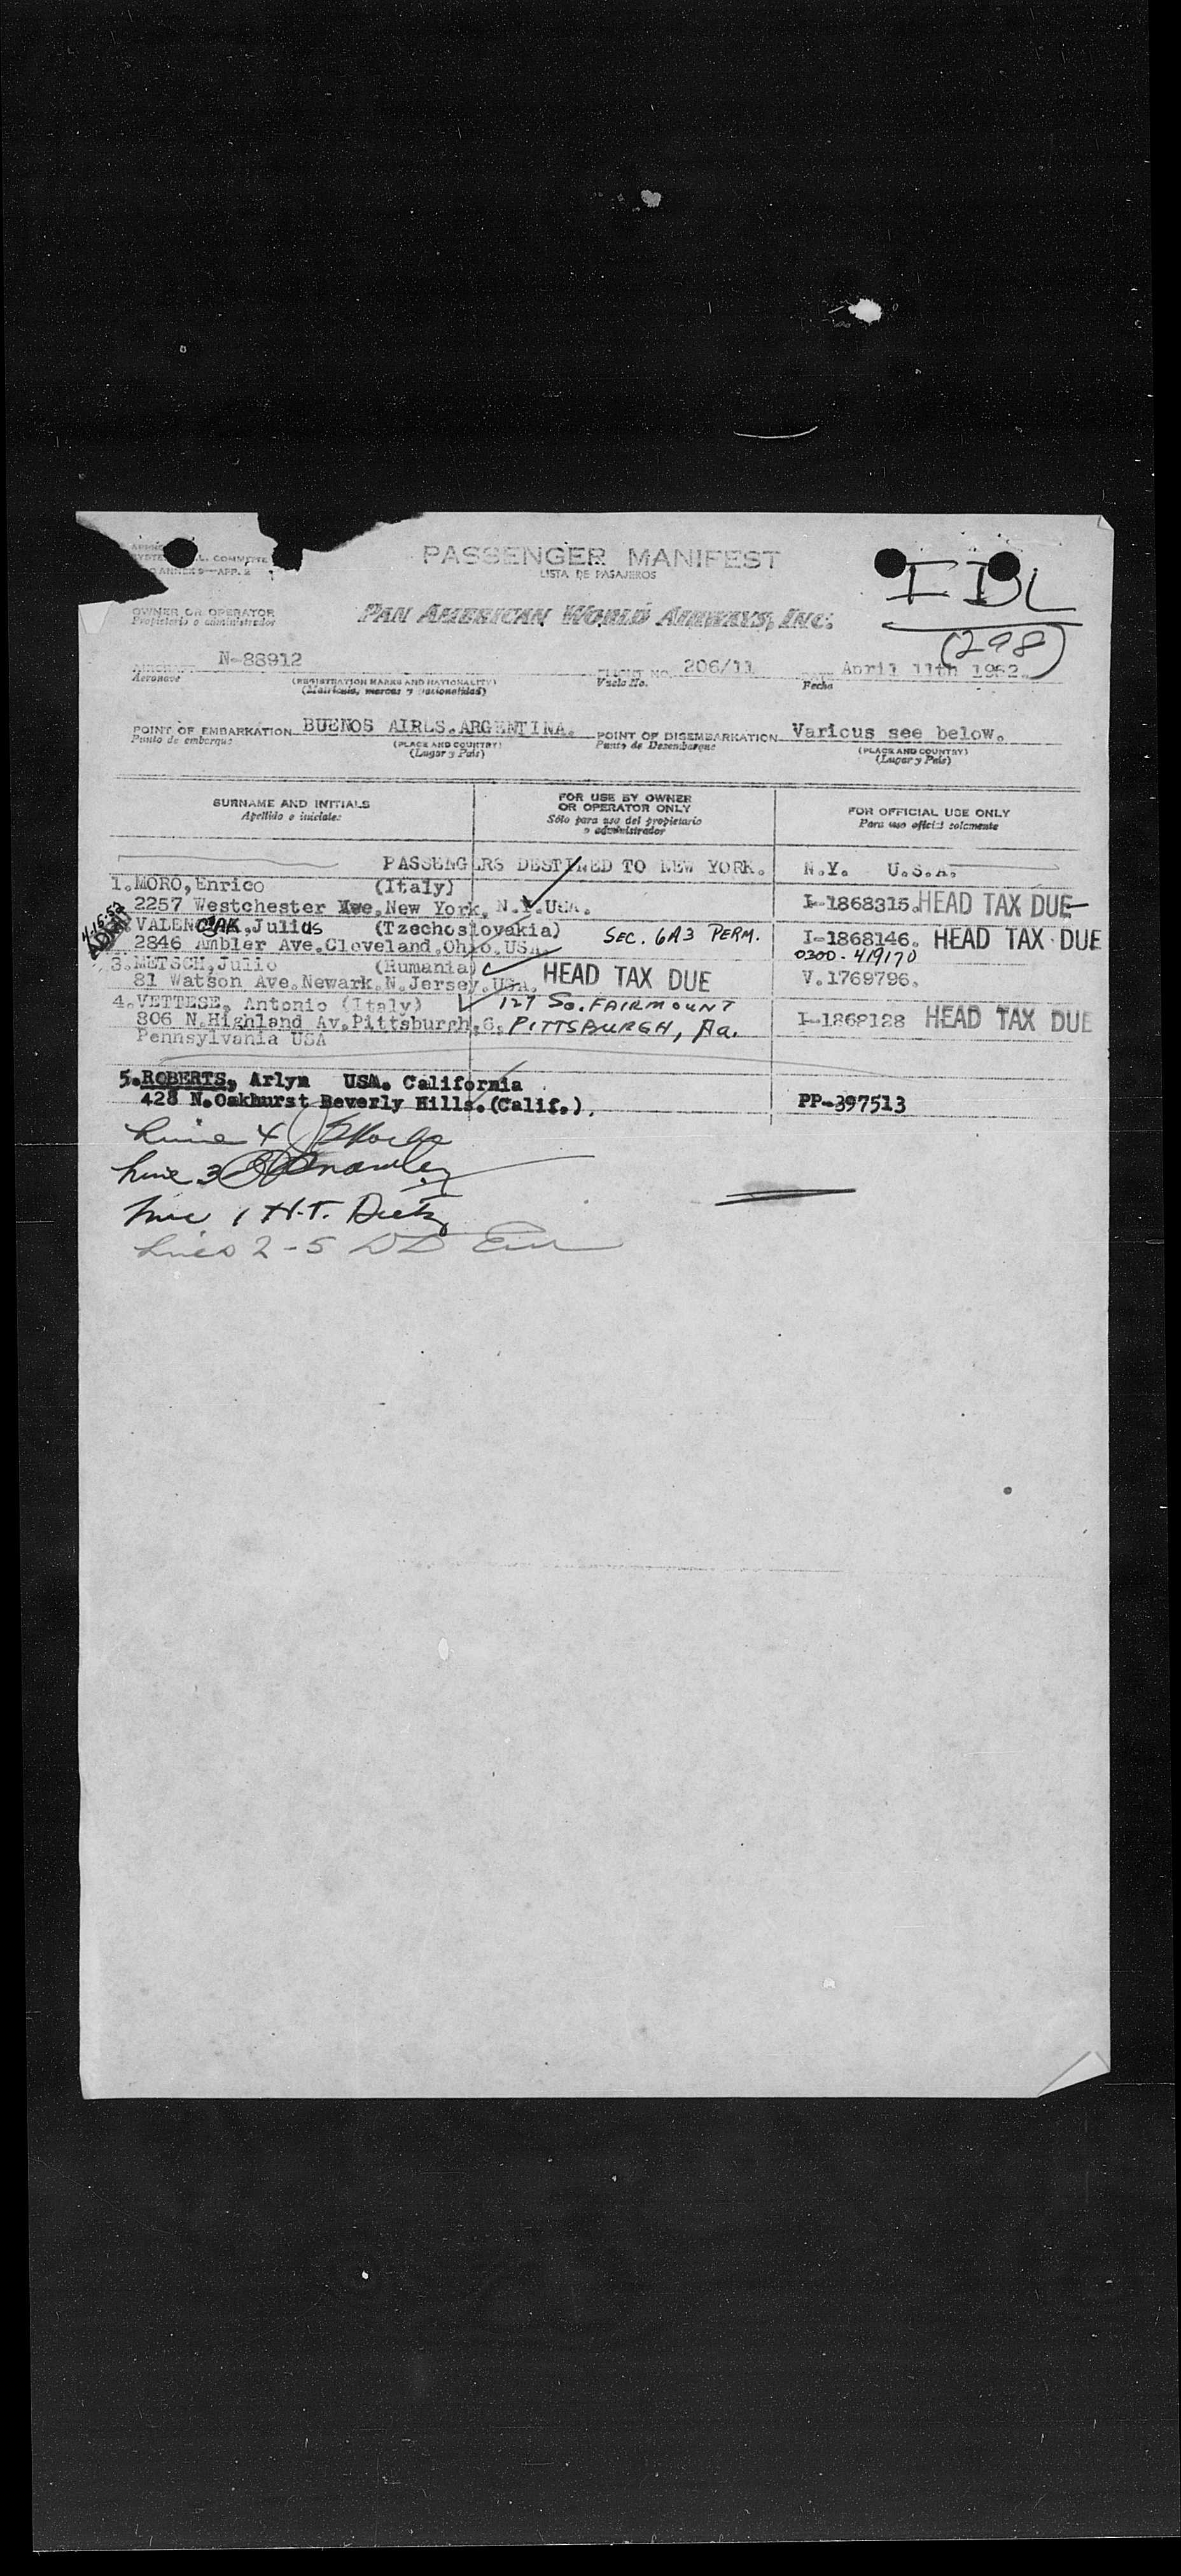 PASSENGER MANIFEST
LISTA DE PASAJEROS
ANNEX 9-APP. 2
IDL
(298)
OWNER OR OPERATOR
Propietario o administrador
PAN AMERICAN WORLD AIRWAYS, INC.
N-88912
Aeronave
(REGISTRATION MARKS AND NATIONALITY)
(Matricula, marcas y nacionalidad)
FLIGHT NO. 206/11
Vuelo No.
April 11th 1952.
Fecha
POINT OF EMBARKATION BUENOS AIRES.ARGENTINA.
Punto de embarque
(PLACE AND COUNTRY)
(Lugar y País)
POINT OF DISEMBARKATION Various see below.
Punto de Desembarque
(PLACE AND COUNTRY)
(Lugar y País)
SURNAME AND INITIALS
Apellido e iniciales
FOR USE BY OWNER
OR OPERATOR ONLY
Sólo para uso del propietario
o administrador
FOR OFFICIAL USE ONLY
Para uso oficial solamente
PASSENGERS DESTINED TO NEW YORK. N.Y. U.S.A.
1.MORO,Enrico (Italy)
2257 Westchester Ave.New York, N.Y.USA. I-1868315. HEAD TAX DUE
4-15-52
ADMIT
VALENCAK,Julius (Tzechoslovakia) SEC. 6A3 PERM. I-1868146. HEAD TAX DUE
2846 Ambler Ave.Cleveland.Ohio.USA. 0300-419170
3.METSCH,Julio (Rumania) HEAD TAX DUE
81 Watson Ave.Newark.N.Jersey.USA. V.1769796.
4.VETTESE, Antonio (Italy) 127 SO. FAIRMOUNT
806 N.Highland Av.Pittsburgh.6, PITTSBURGH, Pa. I-1868128 HEAD TAX DUE
Pennsylvania USA
5.ROBERTS, Arlyn USA. California
428 N.Oakhurst Beverly Hills.(Calif.). PP-397513
Line 4
Line 3
Line 1 H.T. Dietz
Lines 2-5